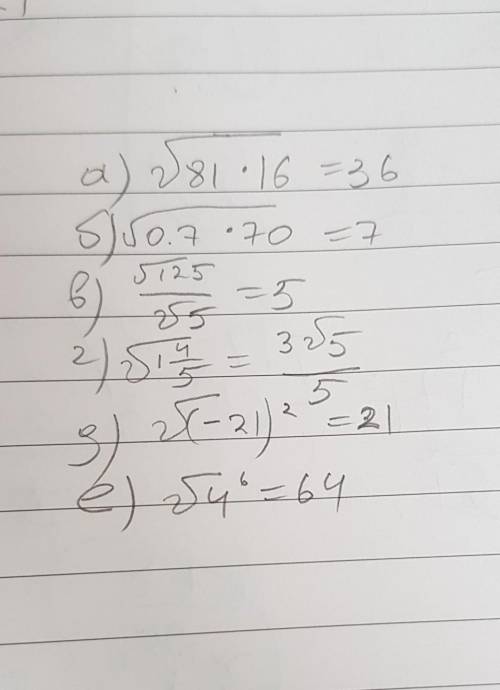 а) √81·16 = 36
б) √0.7·70 = 7
в) √125/√5 = 5
г) √1 4/5 = 3√5/5
д) √(-21)² = 21
е) √4⁶ = 64